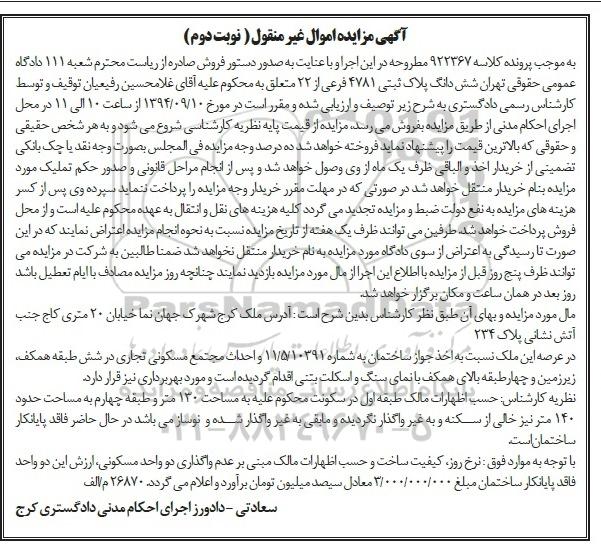 آگهی مزایده اموال غیر منقول ( نوبت دوم )
به موجب پرونده کلاسه ۹۲۲۳۶۷ مطروحه در این اجرا و با عنایت به صدور دستور فروش صادره از ریاست محترم شعبه ۱۱۱ دادگاه
عمومی حقوقی تهران شش دانگ پلاک ثبتی ۴۷۸۱ فرعی از ۲۲ متعلق به محکوم علیه آقای غلامحسین رفیعیان توقیف و توسط
کارشناس رسمی دادگستری به شرح زیر توصیف و ارزیابی شده و مقرر است در مورخ ۱۳۹۴/۰۹/۱۰ از ساعت ۱۰ الی ۱۱ در محل
اجرای احکام مدنی از طریق مزایده بفروش می رسد، مزایده از قیمت پایه نظریه کارشناسی شروع می شود و به هر شخص حقیقی
و حقوقی که بالاترین قیمت را پیشنهاد نماید فروخته خواهد شد ده درصد وجه مزایده فی المجلس بصورت وجه نقد یا چک بانکی
تضمینی از خریدار اخذ و الباقی ظرف یک ماه از وی وصول خواهد شد و پس از انجام مراحل قانونی و صدور حکم تملیک مورد
مزایده بنام خریدار منتقل خواهد شد در صورتی که در مهلت مقرر خریدار وجه مزایده را پرداخت ننماید سپرده وی پس از کسر
هزینه های مزایده به نفع دولت ضبط و مزایده تجدید می گردد کلیه هزینه های نقل و انتقال به عهده محکوم علیه است و از محل
فروش پرداخت خواهد شد، طرفین می توانند ظرف یک هفته از تاریخ مزایده نسبت به نحوه انجام مزایده اعتراض نمایند که در این
صورت تا رسیدگی به اعتراض از سوی دادگاه مورد مزایده به نام خریدار منتقل نخواهد شد ضمنا طالبین به شرکت در مزایده می
توانند ظرف پنج روز قبل از مزایده با اطلاع این اجرا از مال مورد مزایده بازدید نمایند چنانچه روز مزایده مصادف با ایام تعطیل باشد
روز بعد در همان ساعت و مکان برگزار خواهد شد.
مال مورد مزایده و بهای آن طبق نظر کارشناس بدین شرح است : آدرس ملک کرج شهرک جهان نما خیابان ۲۰ متری کاج جنب
آتش نشانی پلاک ۲۳۴
در عرصه این ملک نسبت به اخذ جواز ساختمان به شماره ۱۱/۵/۱۰۳۹۱ و احداث مجتمع مسکونی تجاری در شش طبقه همکف،
زیرزمین و چهار طبقه بالای همکف با نمای سنگ و اسکلت بتنی اقدام گردیده است و مورد بهره برداری نیز قرار دارد.
نظریه کارشناس: حسب اظهارات مالک طبقه اول در سکونت محکوم علیه به مساحت ۱۳۰ متر و طبقه چهارم به مساحت حدود
۱۴۰ متر نیز خالی از سکنه و به غیر واگذار نگردیده و مابقی به غیر واگذار شده و نوساز می باشد در حال حاضر فاقد پایانکار
ساختمان است.
با توجه به موارد فوق : نرخ روز، کیفیت ساخت و حسب اظهارات مالک مبنی بر عدم واگذاری دو واحد مسکونی، ارزش این دو واحد
فاقد پایانکار ساختمان مبلغ ۳/۰۰۰/۰۰۰/۰۰۰ معادل سیصد میلیون تومان برآورد و اعلام می گردد. ۲۶۸۷۰ م/الف
سعادتی - دادورز اجرای احکام مدنی دادگستری کرج
ParsNamadData
۰۲۱-۸۸۳۴۹۶۷۰-۵